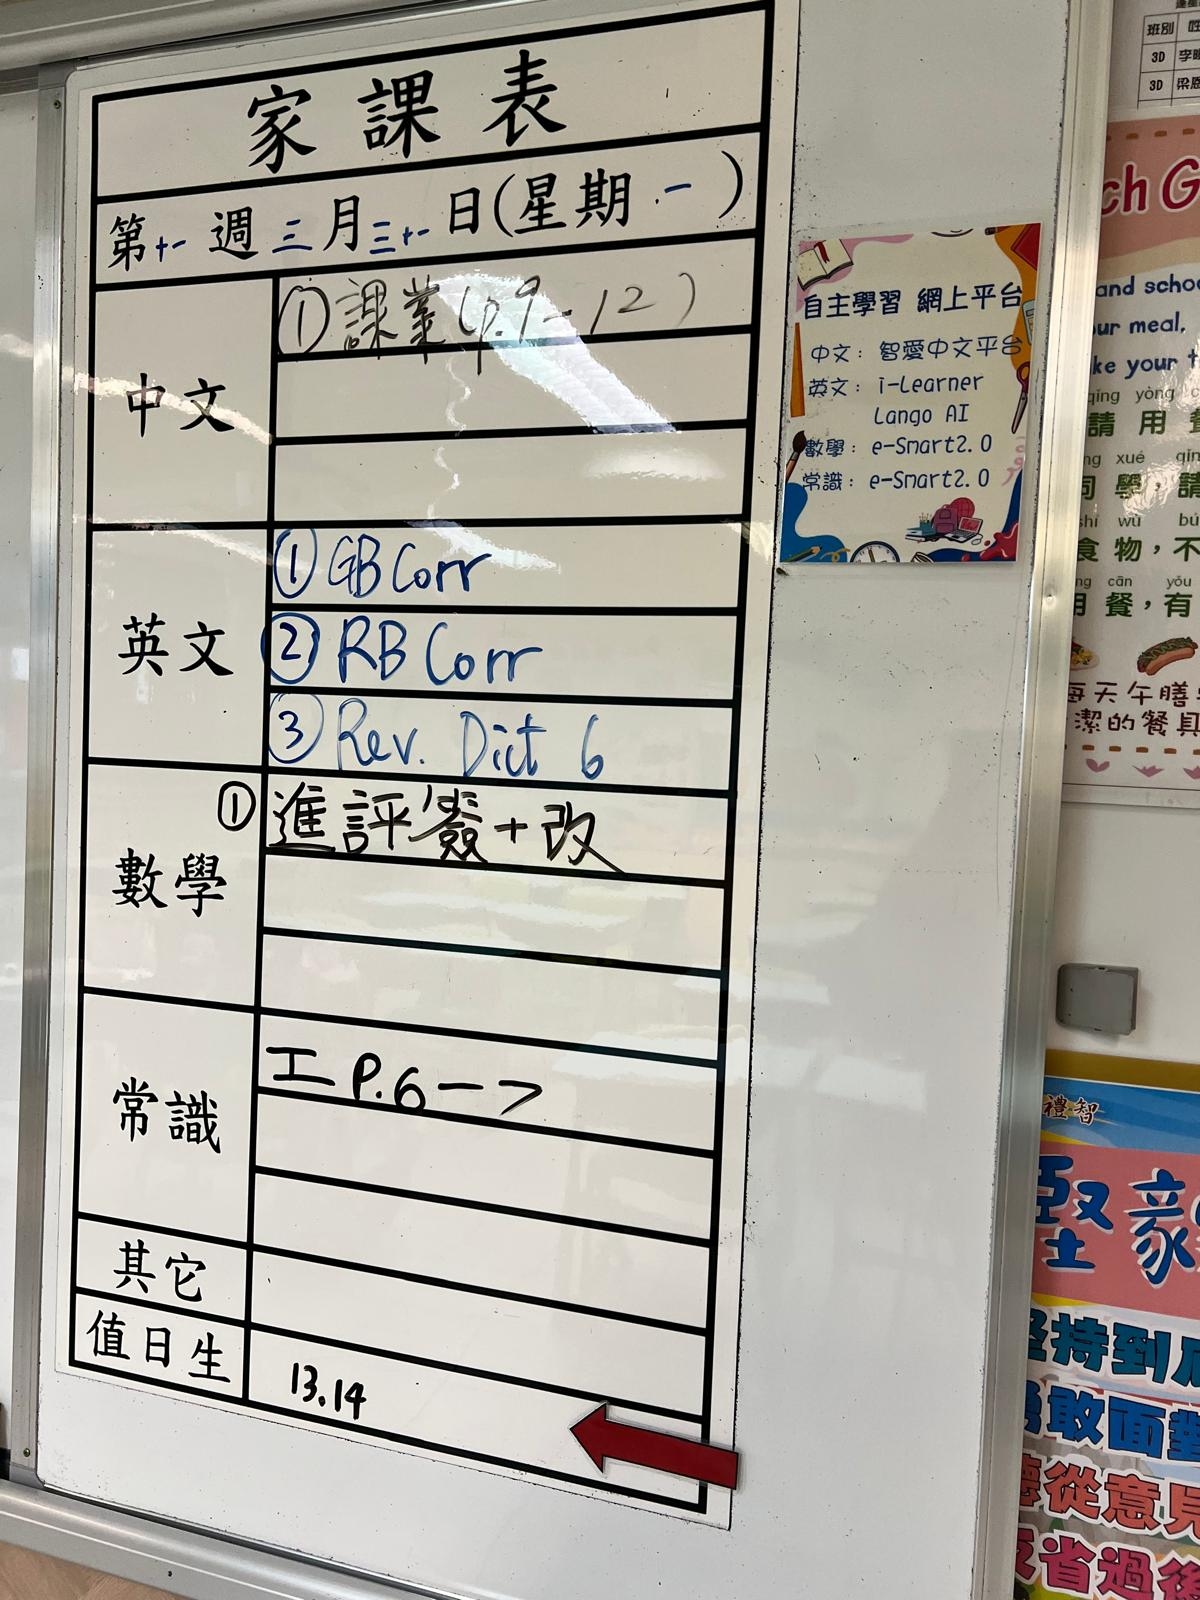 家課表
第十一週 三月三十一日(星期一)
中文
①課業(p.9-12)
英文
①GB Corr
②RB Corr
③Rev. Dict 6
數學
①進評簽+改
常識
工 P.6-7
其它
值日生
13.14
自主學習 網上平台
中文：智愛中文平台
英文：i-Learner
Lango AI
數學：e-Smart2.0
常識：e-Smart2.0
班別
3D 李
3D 梁恩
ch G
and schoo
our meal,
ke your t
qǐng yòng c
請用餐
ng xué qǐn
同學，請
shí wù bú
食物，不
ng cān yǒu
用餐，有
每天午膳
潔的餐具
禮智
堅毅
堅持到底
勇敢面對
聽從意見
反省過後